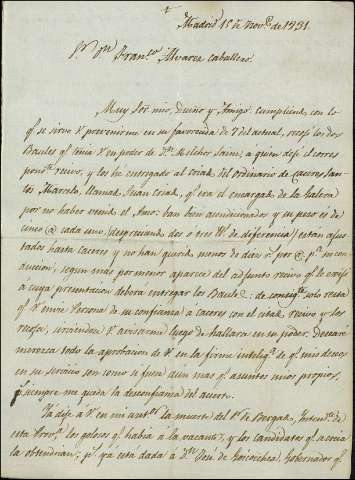 Madrid 15 de Nov.e de 1791.
S.or D.n Fran.co Alvarez Caballero.
Muy Sór mio, dueño y Amigo: Cumpliendo con lo
q.e se sirve V. prevenirme en su favorecida de 7 del actual, recogí los dos
Baules q.e tenia V. en poder de D.n Melchor Jaime, a quien dejé el corres
pond.te recivo, y los he entregado al criado del Ordinario de Caceres San-
tos Marcelo, llamado Juan
por no haber venido el Amo: ban bien acondicionados y su peso es de
cinco @ cada uno (despreciando dos o tres lb de diferencia) están ajus
tados hasta Caceres y no han querido menos de diez r.s por @, p.r su con
duccion, segun mas por menor aparece del adjunto recivo q.e le
a cuya presentacion deberá entregar los Baules: de consig.te solo resta
q.e V. envie Persona de su confianza a Caceres con el citado recivo y los
recoja, sirviendose V. avisarme luego de hallarse en su poder. Desearé
merezca todo la aprobacion de V. en la firme intelig.a de q.e mis deseos
en su servicio son como si fuera aun mas q.e asuntos mios propios,
y siempre me queda la desconfianza del acierto.
Ya dije a V. en mi ant.or la muerte del S.r de Intend.te de
esta Prov.a los golosos q.e habia a la vacante, y los candidatos q.e
la obtendrian; p.s ya está dada a D.n Jose de Goicoechea, Gobernador q.e